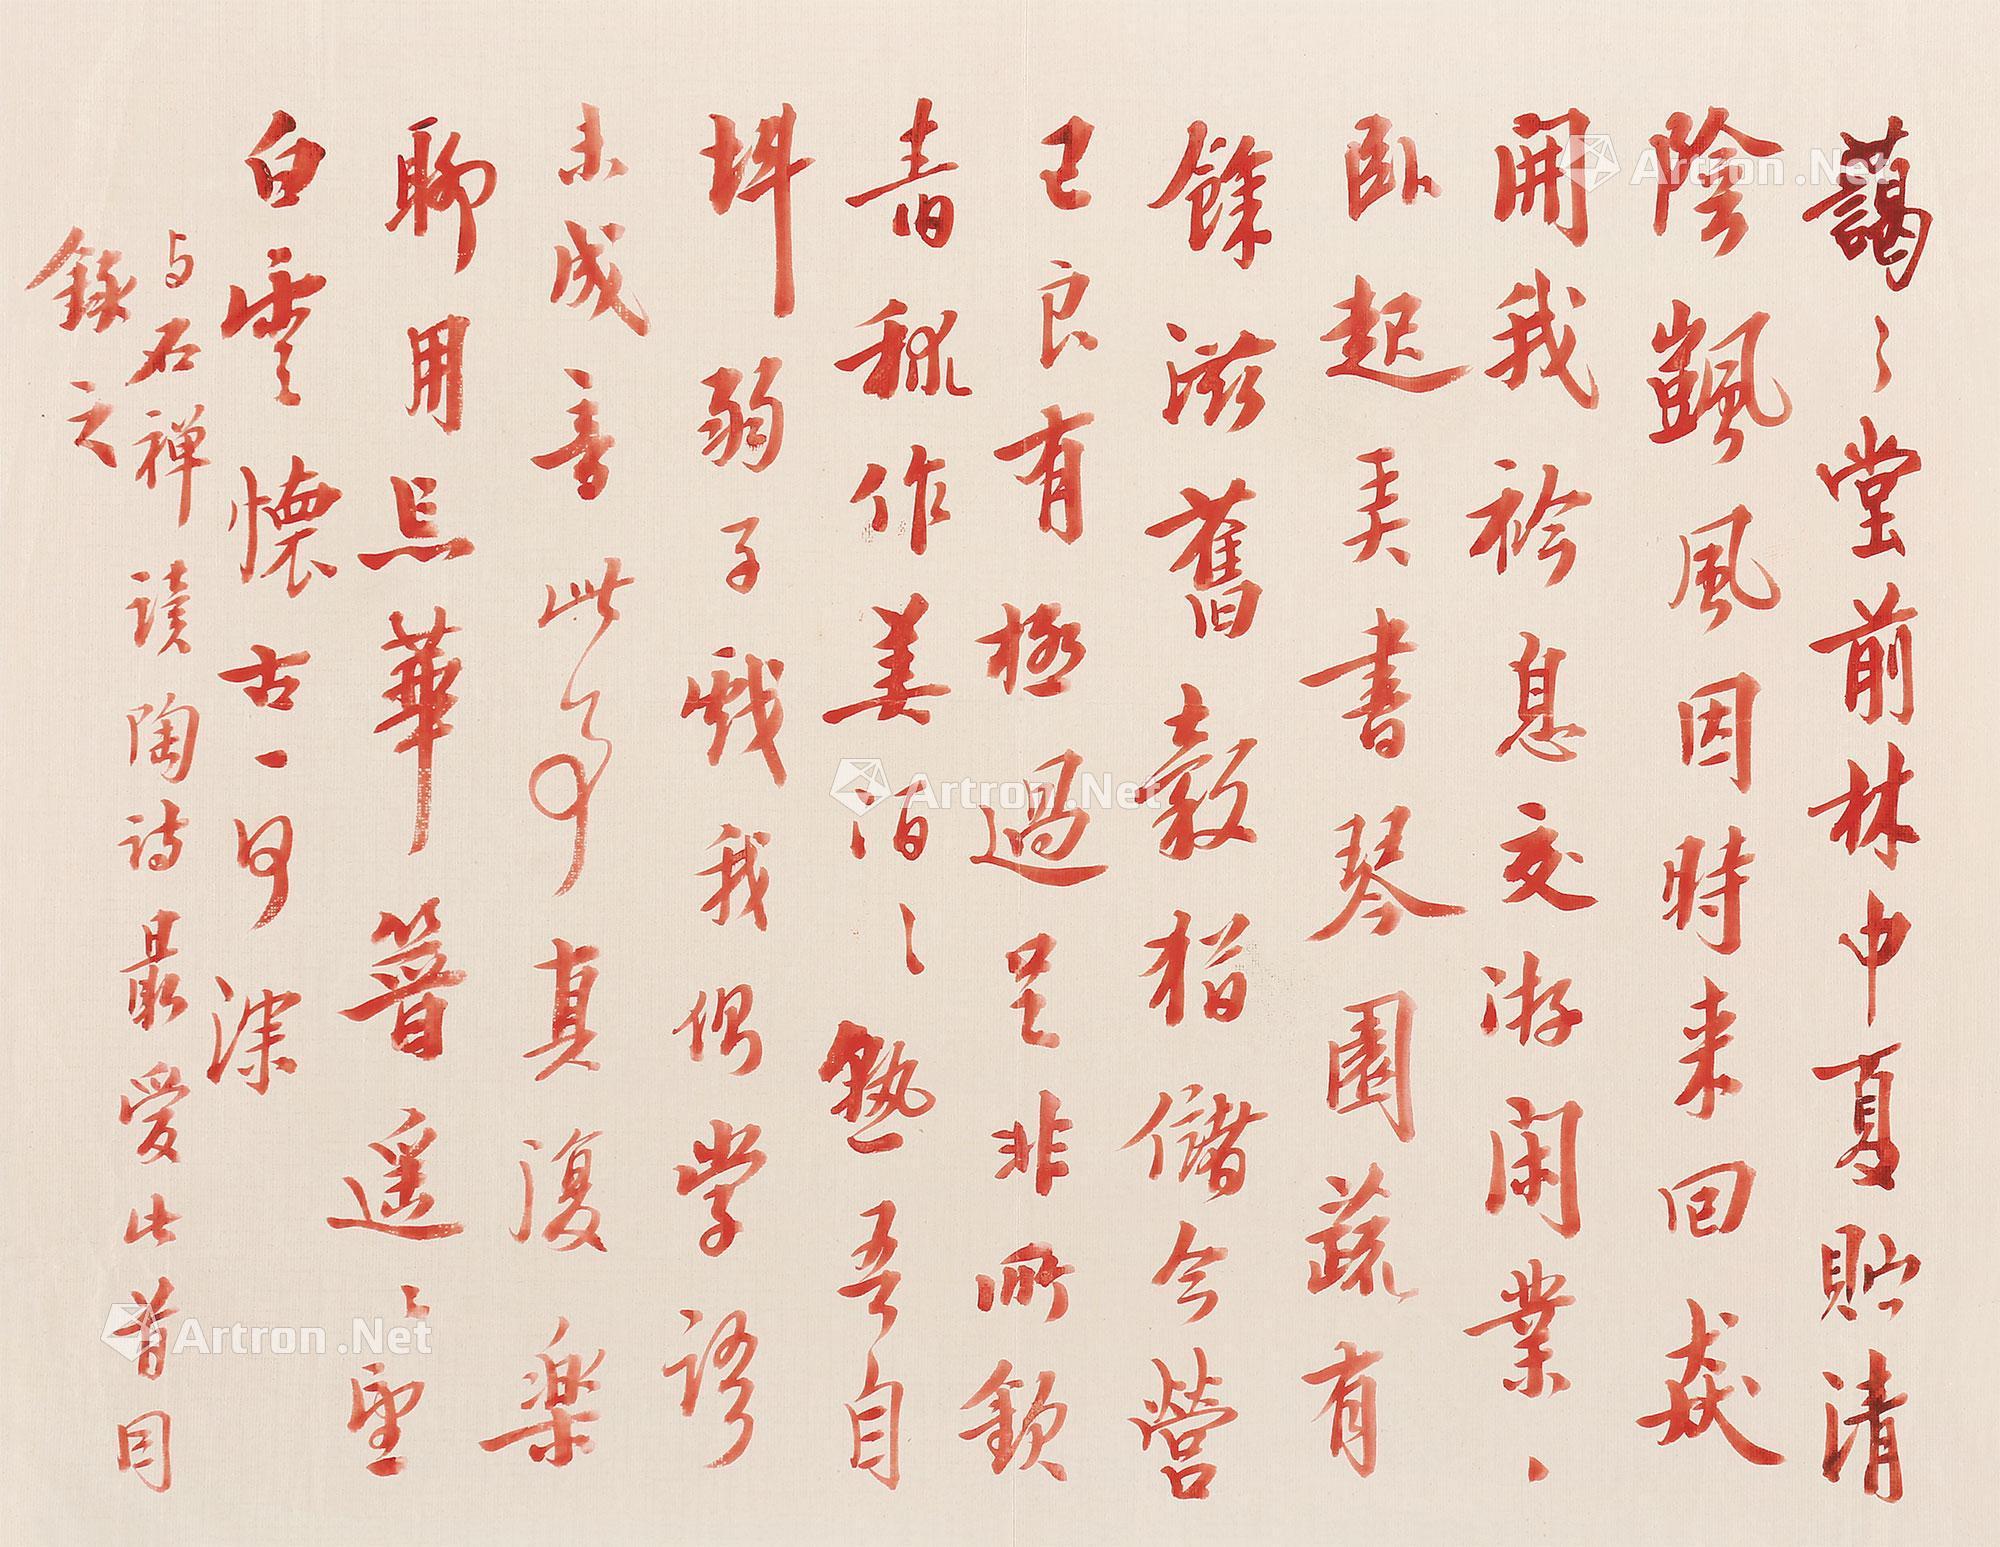 藹〻堂前林中夏貯清
陰颽風因時来回猋
開我衿息交游闲業
臥起弄書琴園蔬有
餘滋舊穀猶儲今營
己良有極過足非所欽
舂秫作美酒〻熟吾自
斟弱子戲我側學語
未成音此事真復楽
聊用忘華簪遥〻望
白雲懷古一何深
与石禅讀陶詩最爱此首因
録之
Artron.Net
Artron.Net
Artron.Net